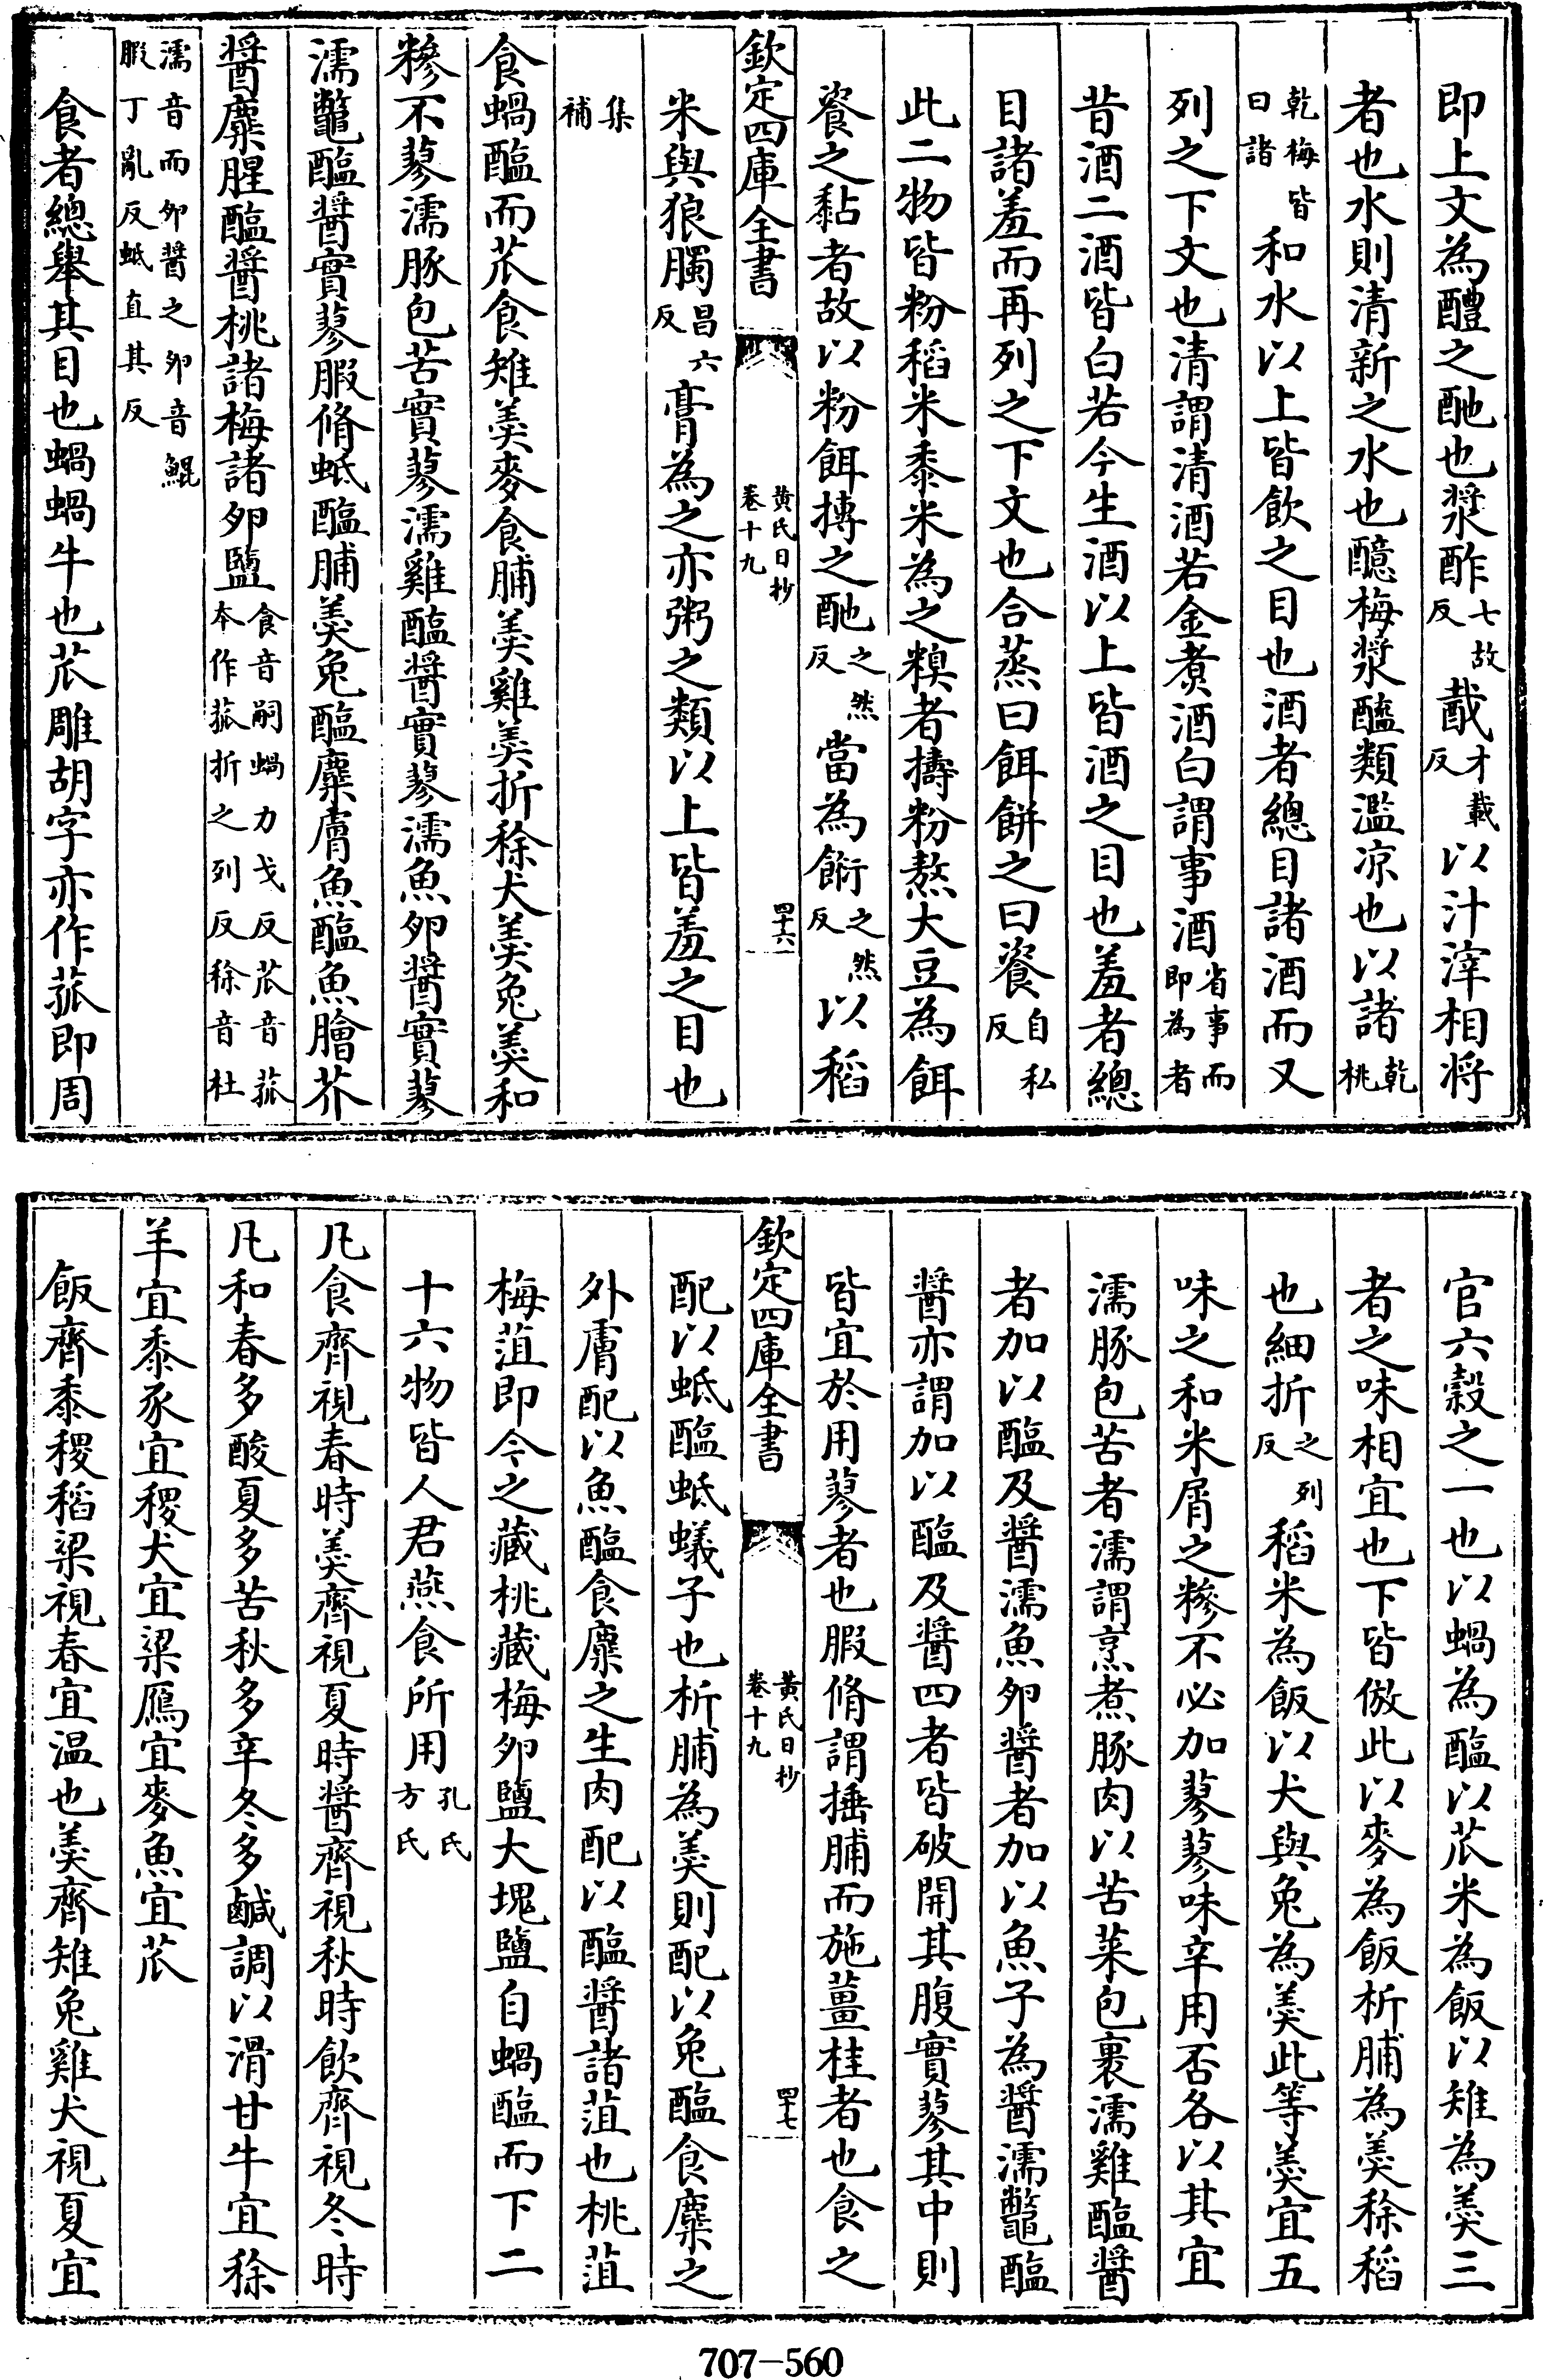 即上文為醴之酏也漿酢七故反酨才載反以汁滓相将
者也水則清新之水也醷梅漿醯類濫凉也以諸乾桃
乾梅皆曰諸和水以上皆飲之目也酒者總目諸酒而又
列之下文也清謂清酒若金煮酒白謂事酒省事而即為者
昔酒二酒皆白若今生酒以上皆酒之目也羞者總
目諸羞而再列之下文也合蒸曰餌餅之曰餈自私反
此二物皆粉稻米黍米為之糗者擣粉熬大豆為餌
餈之黏者故以粉餌摶之酏之然反當為餰之然反以稻
欽定四庫全書 黄氏日抄 卷十九 四十六
米與狼臅昌六反膏為之亦粥之類以上皆羞之目也
集補
食蝸醢而苽食雉羮麥食脯羮雞羮折稌犬羮兔羮和
糝不蓼濡豚包苦實蓼濡雞醢醤實蓼濡魚卵醤實蓼
濡鼈醢醤實蓼腶脩蚳醢脯羮兔醢麋膚魚醢魚膾芥
醤麋腥醢醤桃諸梅諸卵鹽食音嗣蝸力戈反苽音菰本作菰折之列反稌音杜
濡音而卵醤之卵音鯤腶丁亂反蚳直其反
食者總舉其目也蝸蝸牛也苽雕胡字亦作菰即周
官六穀之一也以蝸為醢以苽米為飯以雉為羮三
者之味相宜也下皆倣此以麥為飯析脯為羮稌稻
也細折之列反稻米為飯以犬與兔為羮此等羮宜五
味之和米屑之糝不必加蓼蓼味辛用否各以其宜
濡豚包苦者濡謂烹煮豚肉以苦菜包裹濡雞醢醤
者加以醢及醤濡魚卵醤者加以魚子為醤濡鼈醢
醤亦謂加以醢及醤四者皆破開其腹實蓼其中則
皆宜於用蓼者也腶脩謂捶脯而施薑桂者也食之
欽定四庫全書 黄氏日抄 卷十九 四十七
配以蚳醢蚳蟻子也析脯為羮則配以兔醢食麋之
外膚配以魚醢食麋之生肉配以醢醤諸菹也桃菹
梅菹即今之藏桃藏梅卵鹽大塊鹽自蝸醢而下二
十六物皆人君燕食所用孔氏方氏
凡食齊視春時羮齊視夏時醤齊視秋時飲齊視冬時
凡和春多酸夏多苦秋多辛冬多鹹調以滑甘牛宜稌
羊宜黍豕宜稷犬宜粱鴈宜麥魚宜苽
飯齊黍稷稻粱視春宜温也羮齊雉兔雞犬視夏宜
707—560